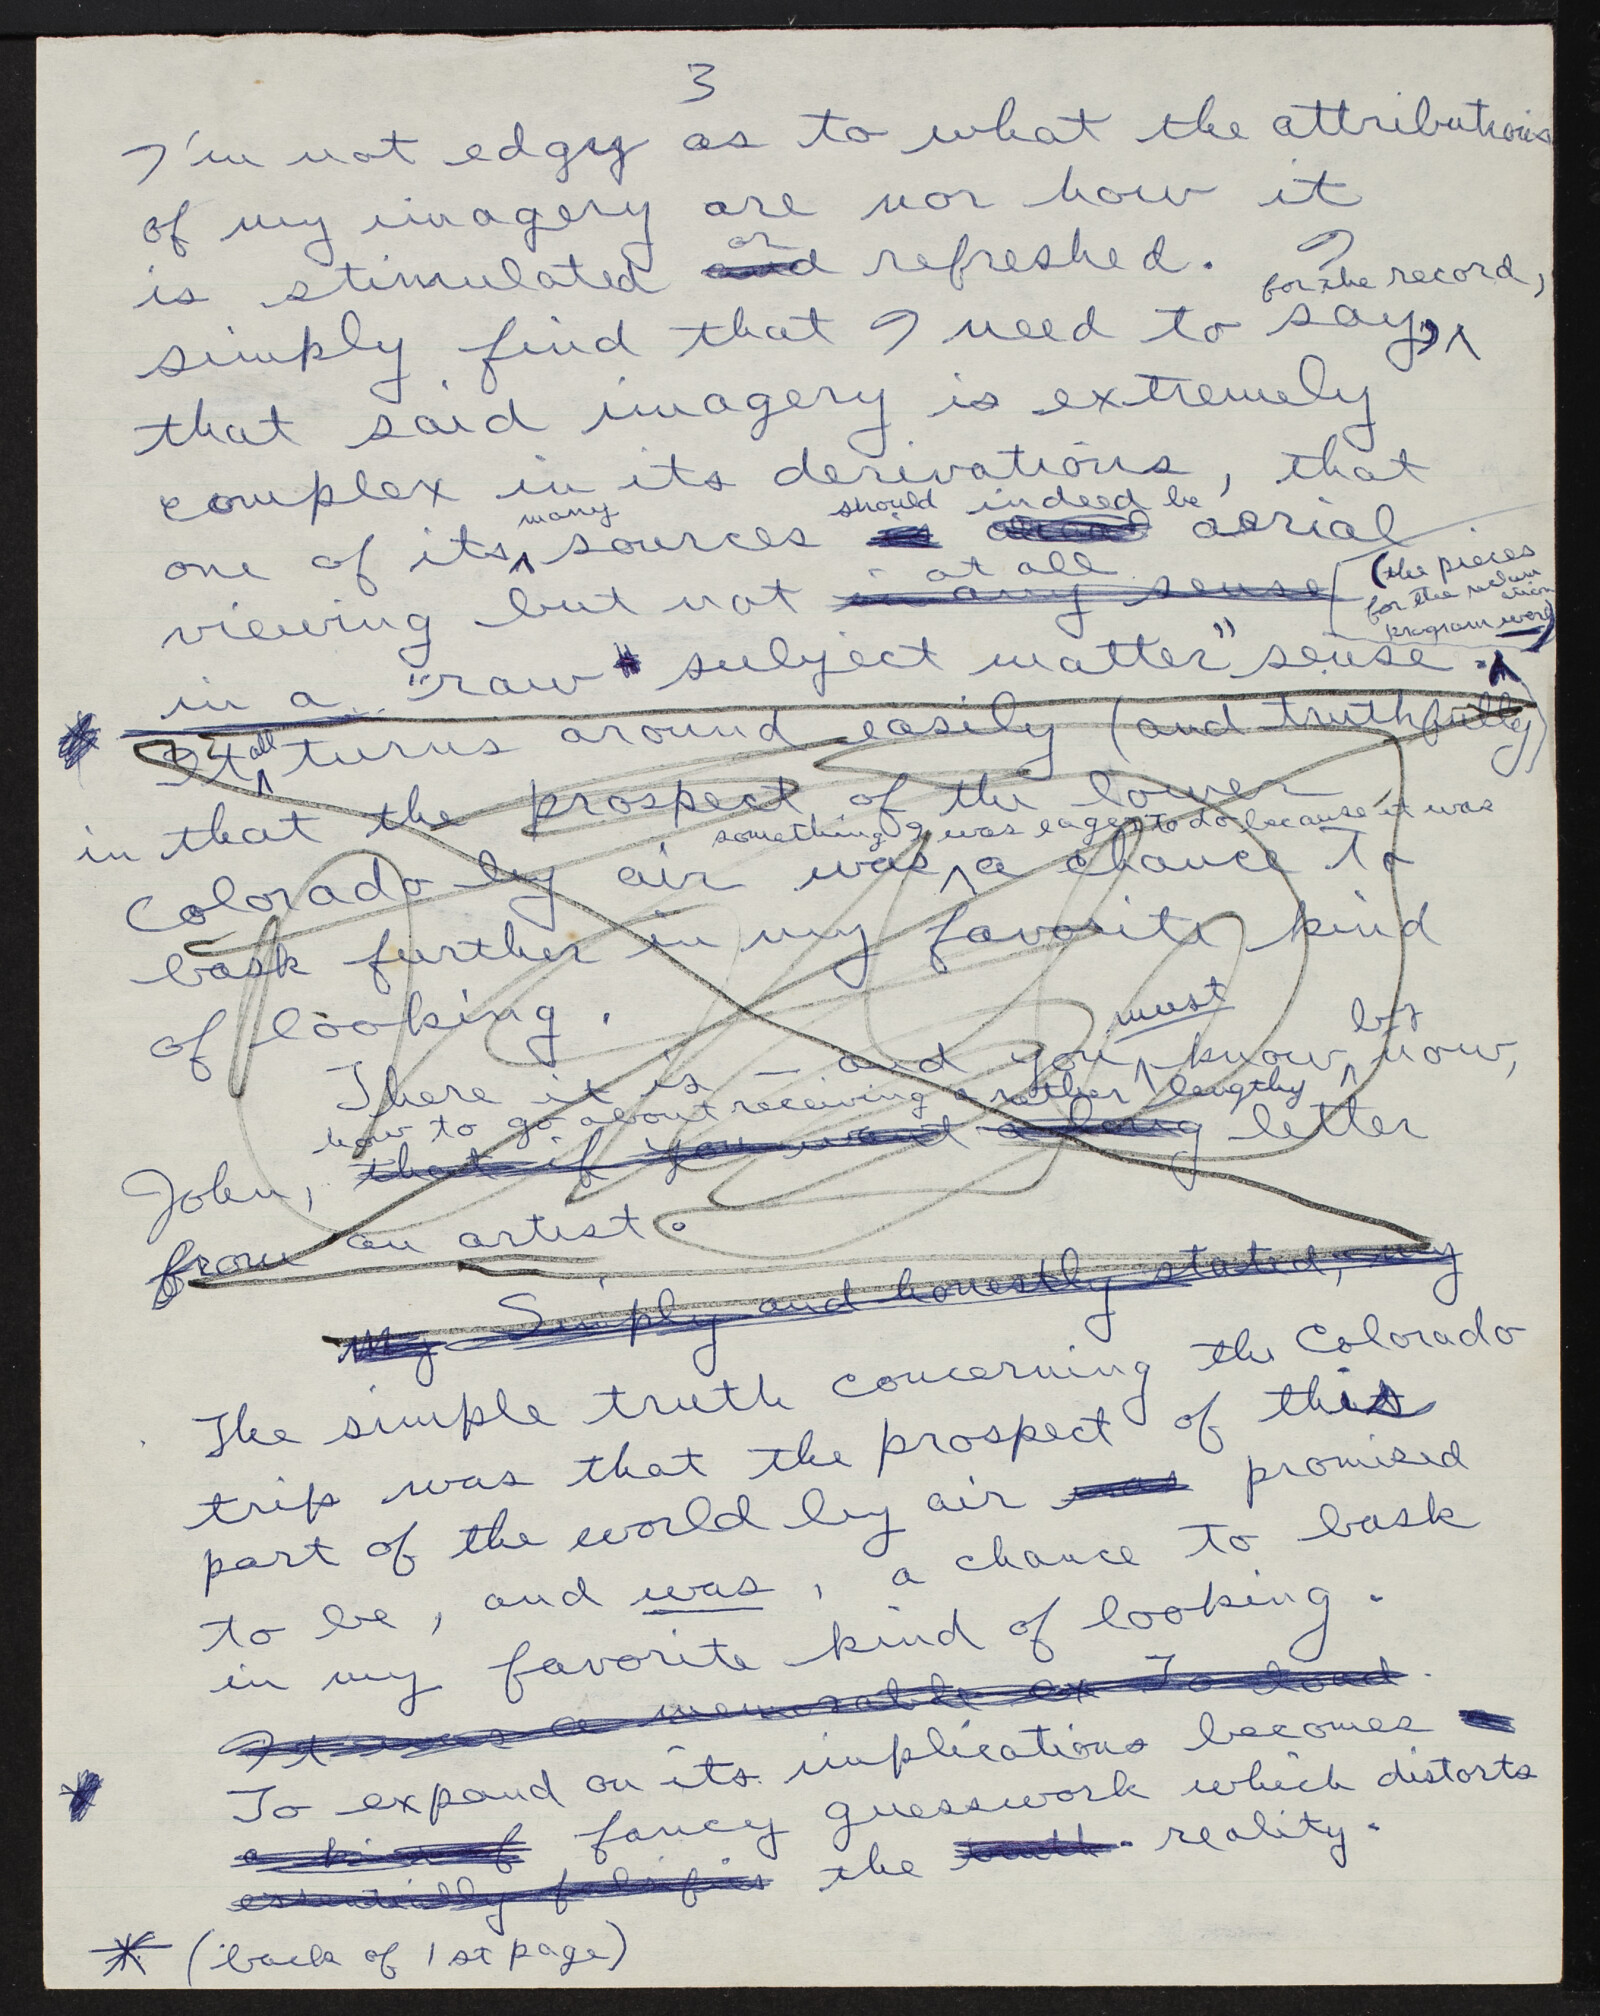 3
I'm not edgy as to what the attributions
of my imagery are nor how it
or
is stimulated and refreshed. I
for the record,
simply find that I need to say,
that said imagery is extremely
complex in its derivations, that
many should indeed be
one of its sources is aerial
at all (the pieces
viewing but not in any sense for the
program word)
in a "raw subject matter" sense.
It all turns around easily (and truthfully)
in that the prospect of the lower
something I was eager to do because it was
Colorado by air was a chance to
bask further in my favorite kind
of looking.
must by
There it is — and you know now,
how to go about receiving a rather lengthy
John, that if you want a long letter
from an artist.
My Simply and honestly stated, my
The simple truth concerning the Colorado
trip was that the prospect of this
part of the world by air was promised
to be, and was, a chance to bask
in my favorite kind of looking.
It was a memorable ex To load
To expand on its implications becomes
a kind of fancy guesswork which distorts
essentially falsifies the truth reality.
* (back of 1st page)